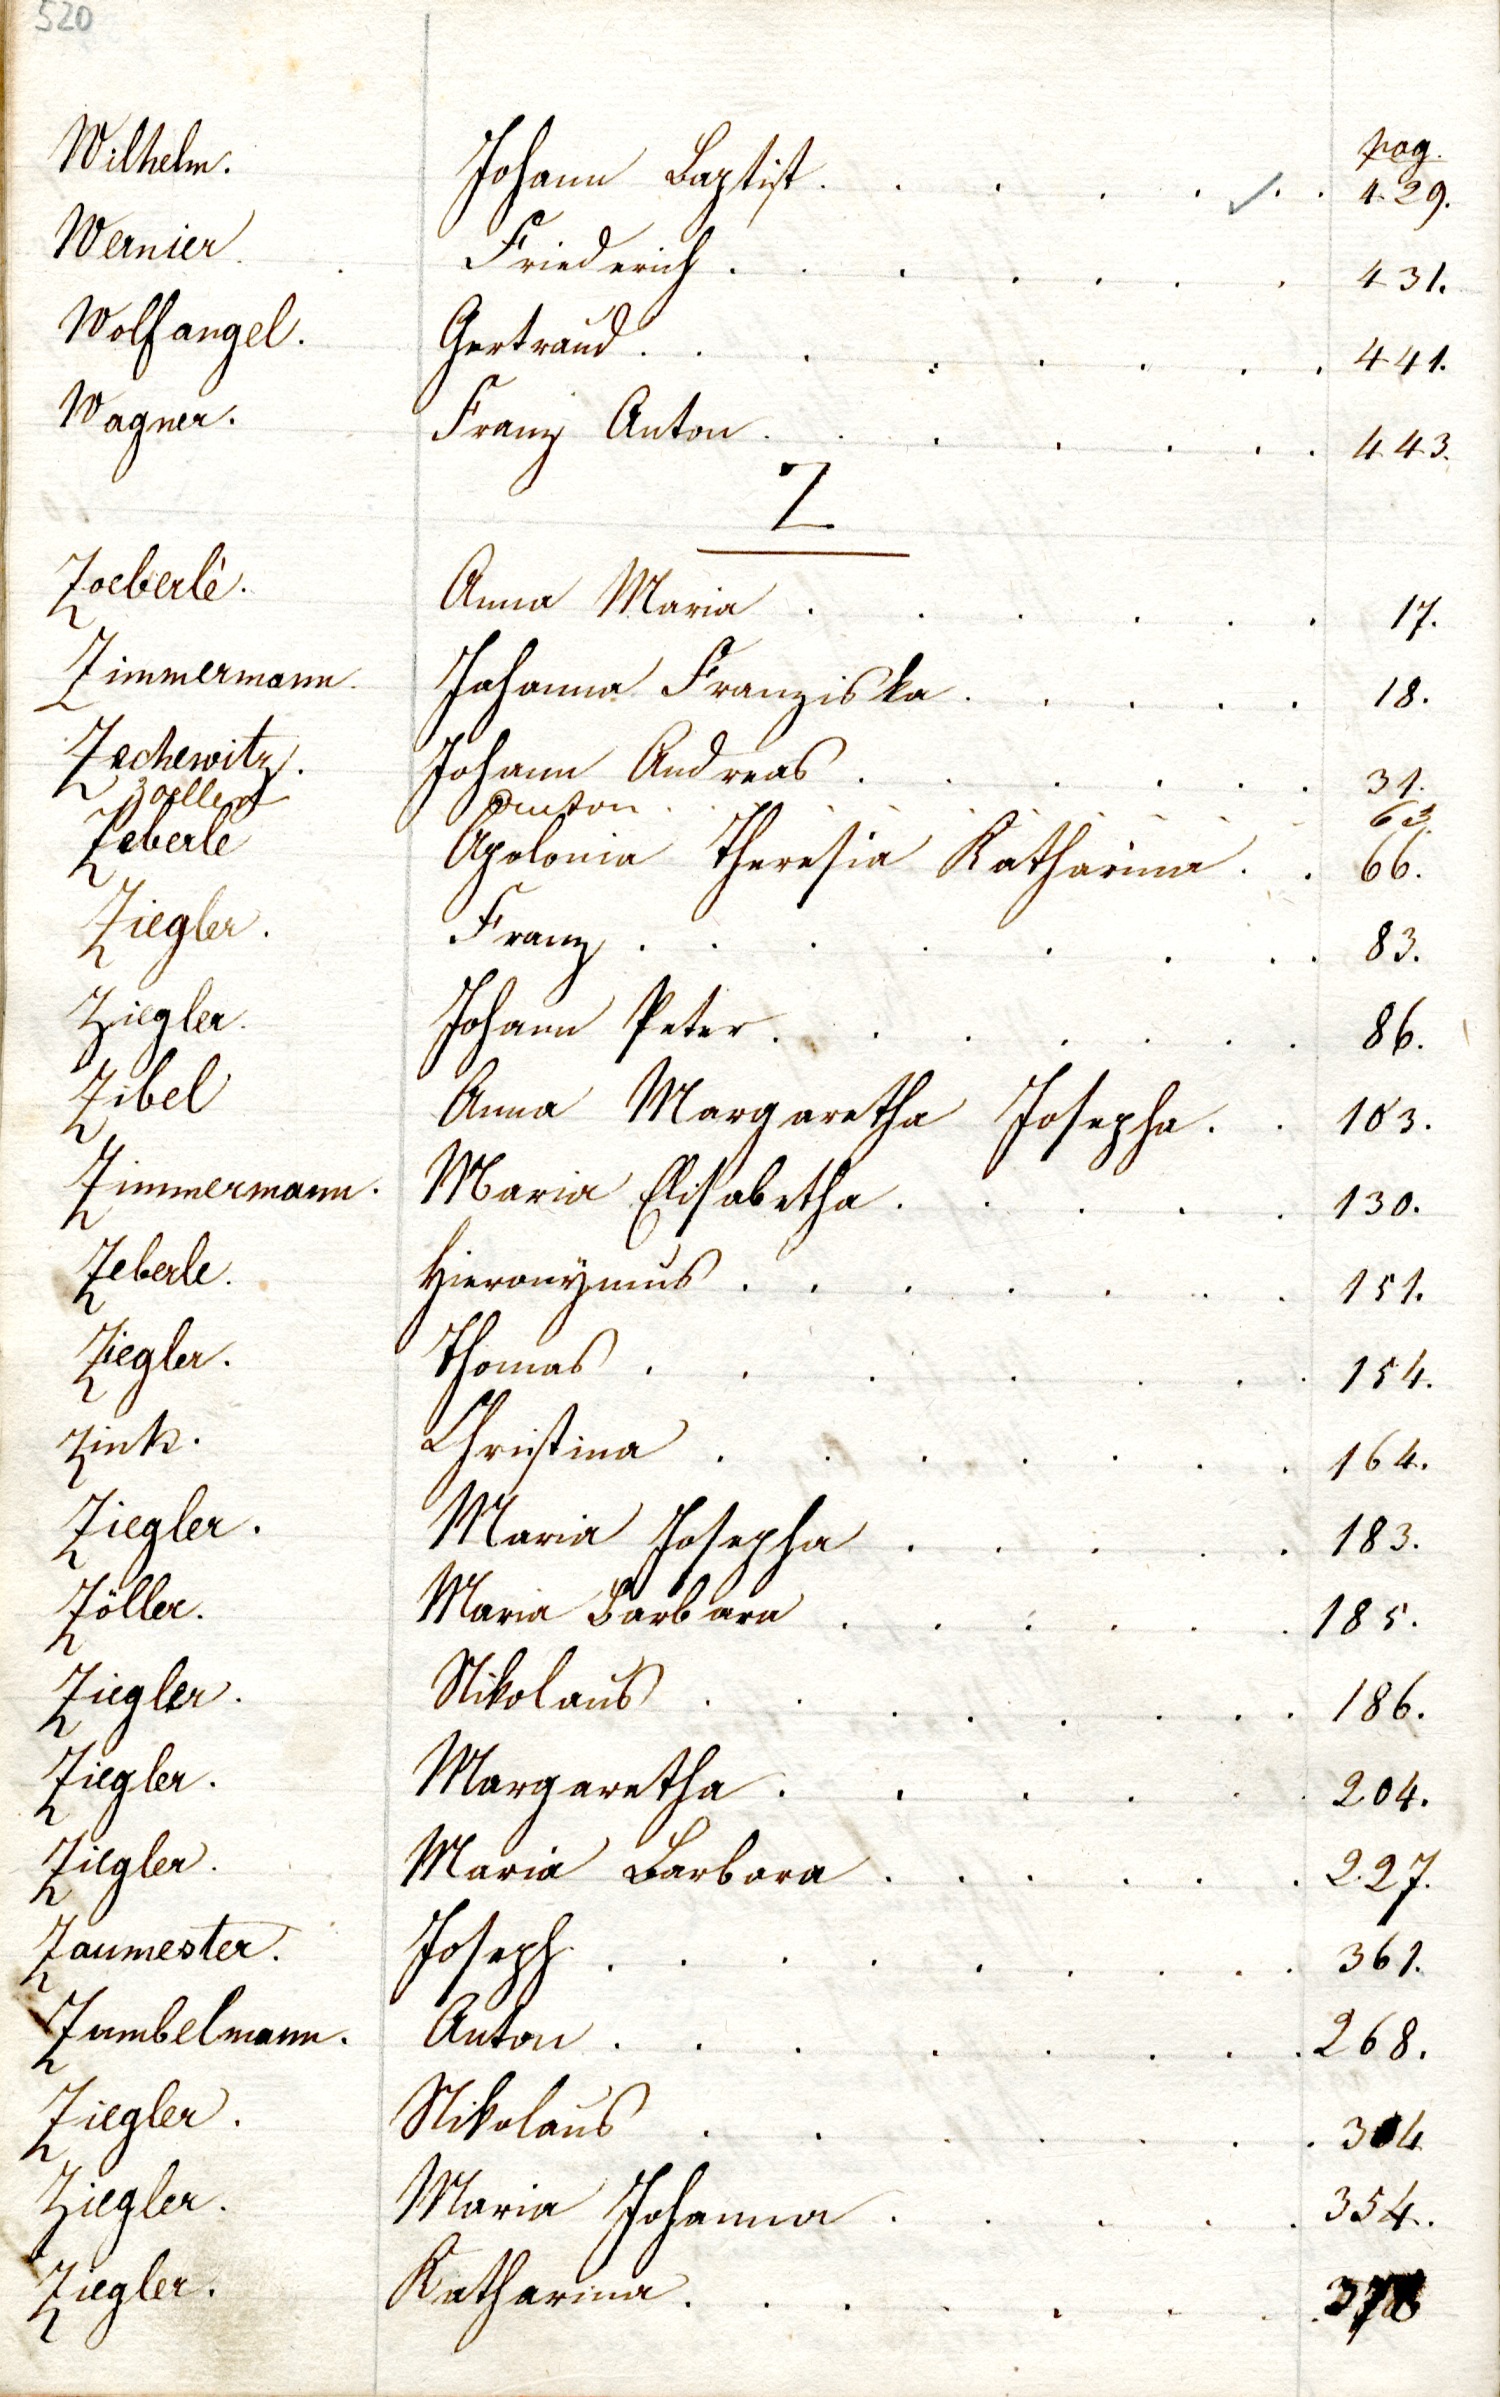 520
pag.
Wilhelm. Johann Baptist. 429.
Wernier. Friederich. 431.
Wolfangel. Gertraud. 441.
Wagner. Franz Anton. 443.
Z
Zoeberlé. Anna Maria 17.
Zimmermann. Johanna Franziska. 18.
Zechewitz. Johann Andreas. 31.
Zoeller Anton. 63.
Zeberle Apolonia Theresia Katharina. 66.
Ziegler. Franz. 83.
Ziegler. Johann Peter. 86.
Zibel Anna Margaretha Josepha. 103.
Zimmermann. Maria Elisabetha. 130.
Zeberle. Hieronÿmus. 151.
Ziegler. Thomas. 154.
Zink. Christina. 164.
Ziegler. Maria Josepha. 183.
Zöller. Maria Barbara. 185.
Ziegler. Nikolaus. 186.
Ziegler. Margaretha. 204.
Ziegler. Maria Barbara. 227.
Zaumester. Joseph. 361.
Zumbelmann. Anton. 268.
Ziegler. Nikolaus. 304
Ziegler. Maria Johanna. 354.
Ziegler. Katharina.